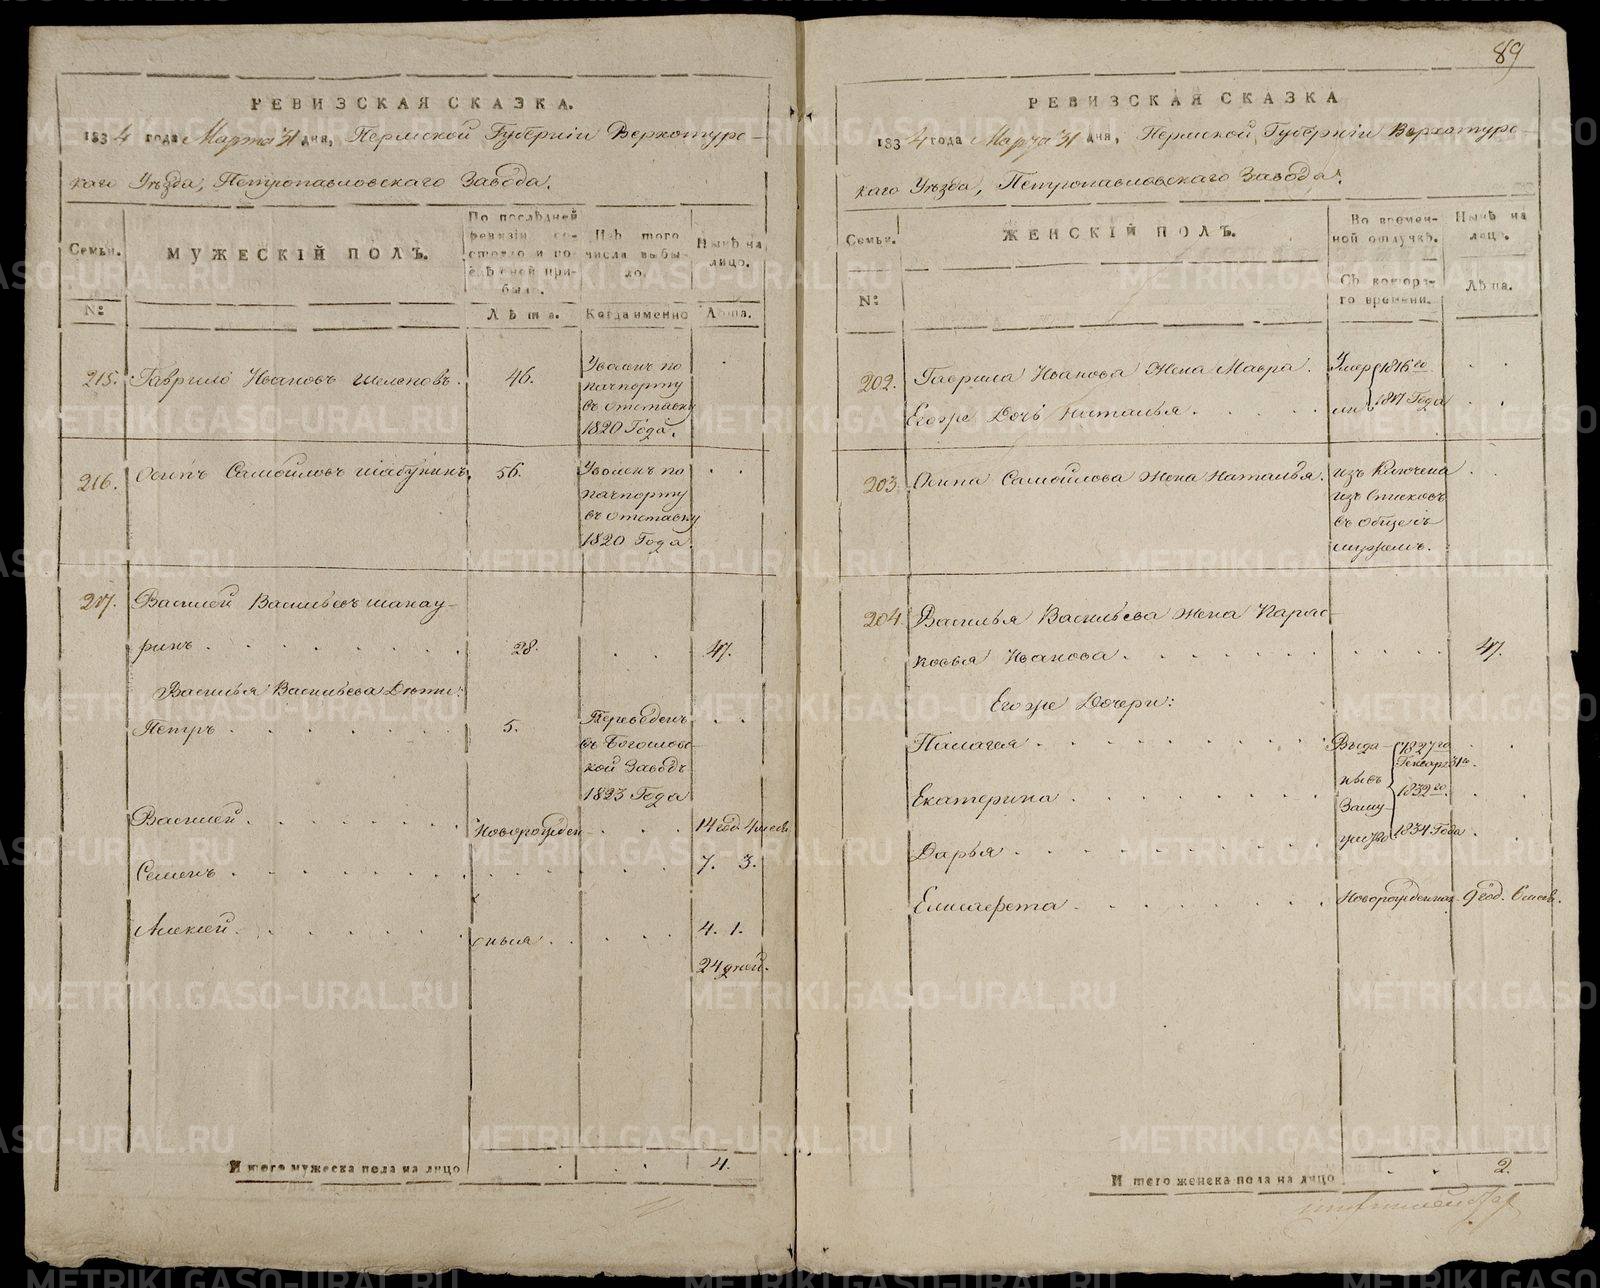 89
РЕВИЗСКАЯ СКАЗКА.
1834 года Марта 31 дня, Пермской Губерніи Верхотурс-
каго Уѣзда, Петропавловскаго Завода.
Семьи.
МУЖЕСКІЙ ПОЛЪ.
По послѣдней ревизіи состояло и послѣ оной прибыло.
Изъ того числа выбыло.
Нынѣ на лицо.
№:
Лѣта.
Когда именно
Лѣта.
215. Гаврило Ивановъ 46.
Уволенъ по
пачпорту
въ отставку
1820 Года.
216. Осипъ Самойловъ Шабунинъ. 56.
Уволенъ по
пачпорту
въ отставку
1820 Года.
217. Василей Васильевъ шакау-
ринъ 28. 47.
Василья Васильева Дѣти:
Петръ 5.
Переведенъ
въ Богословс-
кой Заводъ
1823 Года
Василей Новорожден- 14 год. 4 мѣс.
Семенъ 7. 3.
Алексей ныя 4. 1.
24 дней.
И того мужеска пола на лицо 4.
РЕВИЗСКАЯ СКАЗКА
1834 года Марта 31 дня, Пермской Губерніи Верхотурс-
каго Уѣзда, Петропавловскаго Завода.
Семьи.
ЖЕНСКІЙ ПОЛЪ.
Во временной отлучкѣ.
Нынѣ на лицо.
№:
Съ котораго времени.
Лѣта.
202. Гаврила Иванова Жена Мавра. Умер- 1816го
Егоже Дочь Наталья. ли 1817 Года
203. Осипа Самойлова Жена Наталья. изъ Ключена
изъ Списковъ
въ общее съ
мужемъ.
204. Василья Васильева Жена Парас-
ковья Иванова. 47.
Егоже Дочери:
Палагея Выда- 1827го
Генваря 31го.
Екатерина ныя 1832го.
Заму-
Дарья жество 1834 Года
Елисавета Новорожденная 9 год. 6 мѣс.
И того женска пола на лицо 2.